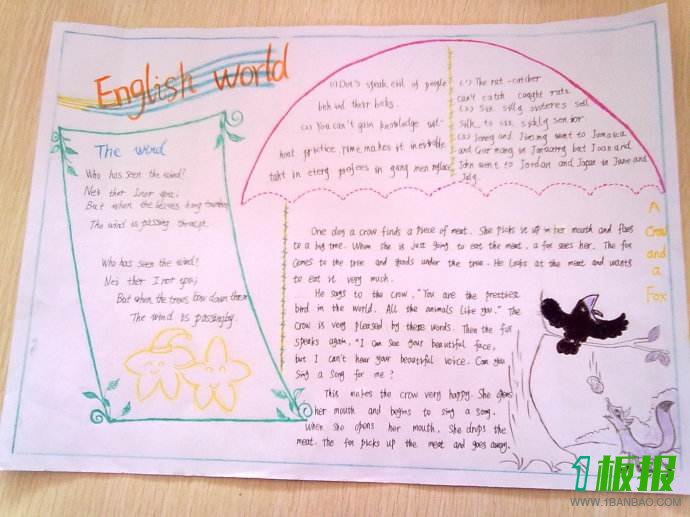 English world
The wind
Who has seen the wind?
Neither I nor you;
But when the leaves hang
The wind is passing
Who has seen the wind!
Neither I nor you;
But when the trees bow down them
The wind is passingby.
(1) Don't speak evil of people
behind their backs.
(2) You can't gain knowledge wit-
hout practice, makes it inevitable
in
(1) The rat-catcher
can't catch caught rats
(2) Six silly sisters sell
silk to six sickly senior
(3) and went to Jamaica
and in January but Joan and
John went to Jordan and Japan in June and
July.
A Crow and a Fox
One day a crow finds a piece of meat. She picks it up in her mouth and flies
to a big tree. When she is just going to eat the meat, a fox sees her. The fox
comes to the tree and stands under the tree. He looks at the meat and wants
to eat it very much.
He says to the crow, "You are the prettiest
bird in the world. All the animals like you." The
crow is very pleased by these words. Then the fox
speaks again, "I can see your beautiful face,
but I can't hear your beautiful voice. Can you
sing a song for me?
This makes the crow very happy. She opens
her mouth and begins to sing a song.
When she opens her mouth, She drops the
meat. The fox picks up the meat and goes away.
1板报
WWW.1BANBAO.COM